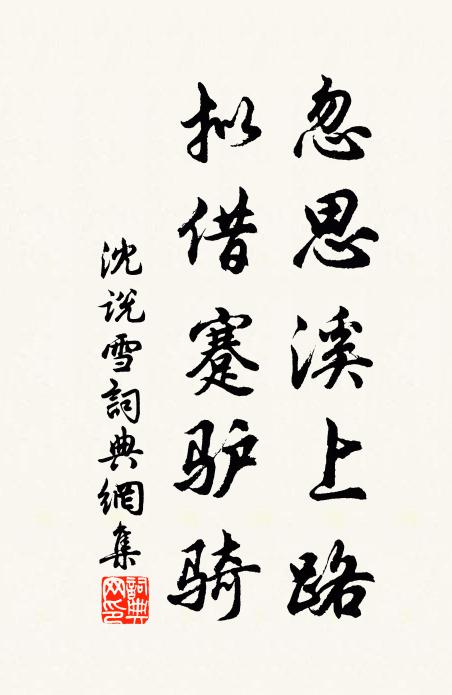 忽思溪上路
拟借蹇驴骑
沈说雪詞典網集
詞典网印